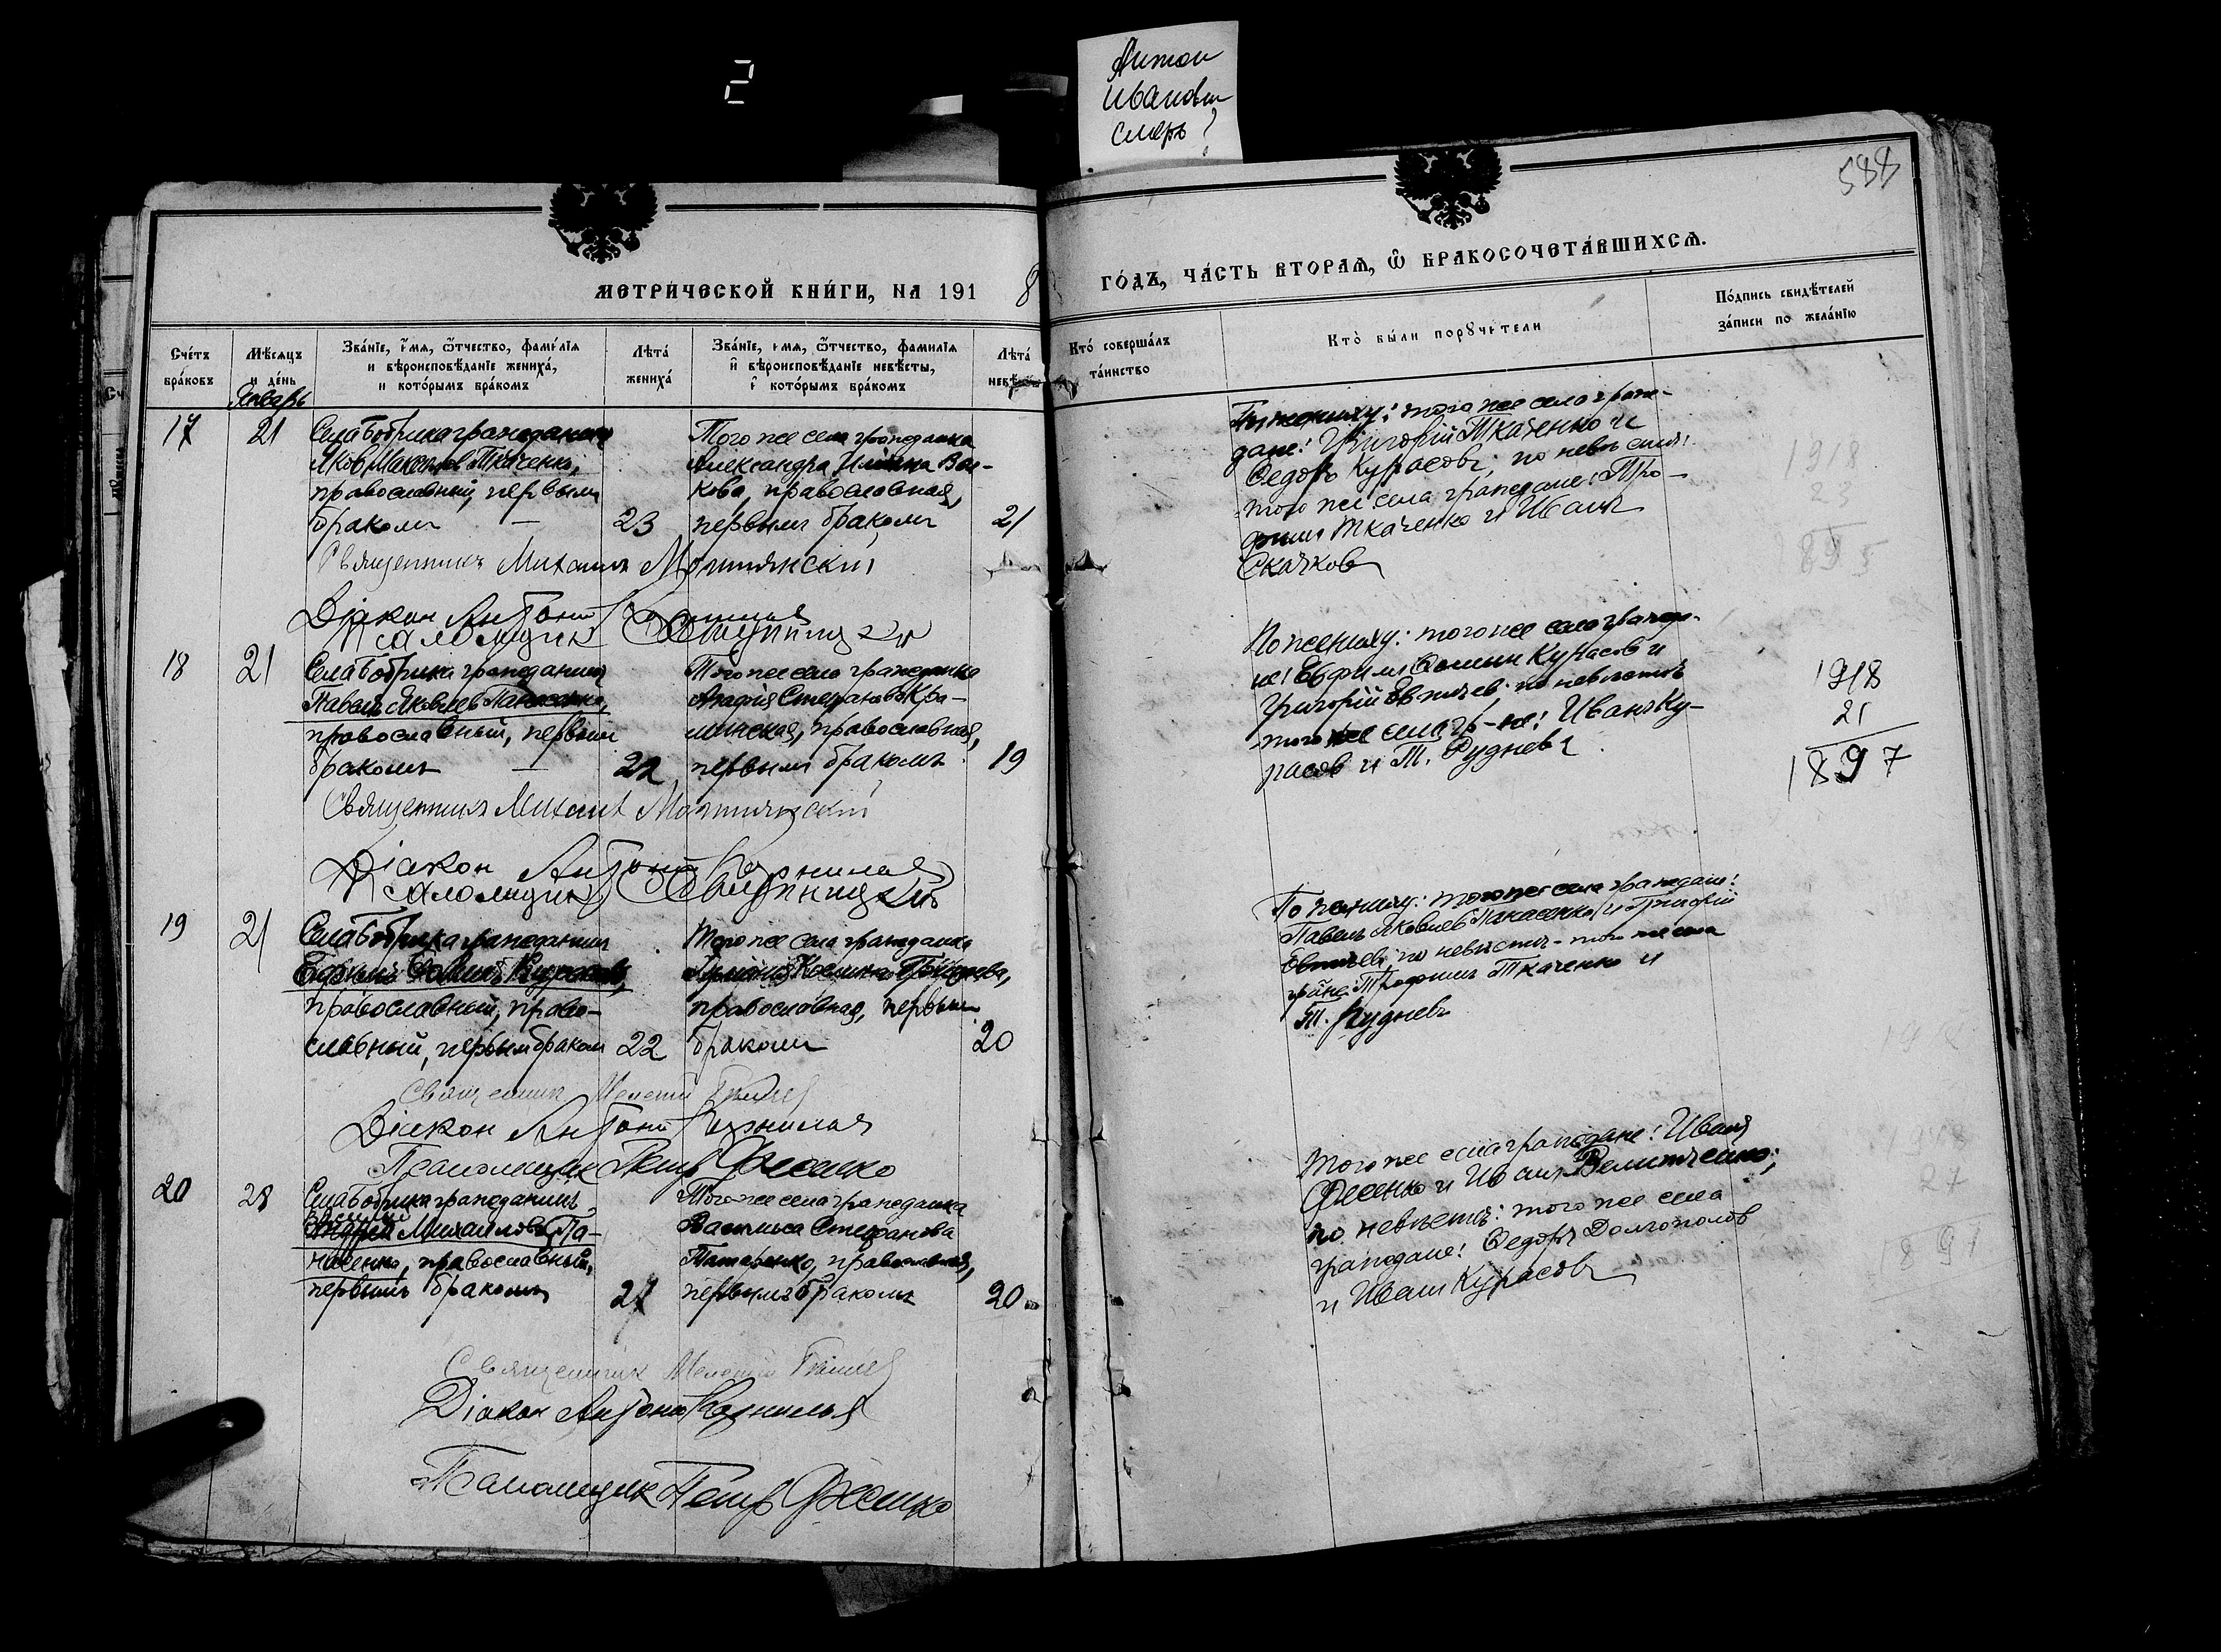 2
Антон
Иванов
смерть?
588
МЕТРИЧЕСКОЙ КНИГИ, НА 1918
ГОДЪ, ЧАСТЬ ВТОРАЯ, Ѡ БРАКОСОЧЕТАВШИХСЯ.
Счетъ браковъ
Мѣсяцъ и день
Званіе, имя, ѿчество, фамилія и вѣроисповѣданіе жениха, и которымъ бракомъ
Лѣта жениха
Званіе, имя, ѿчество, фамилія и вѣроисповѣданіе невѣсты, и которымъ бракомъ
Лѣта невѣсты
Кто совершалъ таинство
Кто были порꙋчители
Подпись свидѣтелей записи по желанію
Январь
17
21
Села Бобрика гражданинъ
Яков Ткаченко,
православный, первымъ
бракомъ —
23
Того же села гражданка
Александра Вол-
кова, православная,
первымъ бракомъ
21
Священникъ Михаилъ
Діакон Антоній
Псаломщик
По жениху: того же села граж-
дане: Григорій Ткаченко и
Ѳедоръ Курасовъ; по невѣстѣ:
того же села граждане: Тро-
фимъ Ткаченко и Иванъ
Скачков
1918
23
1895
18
21
Села Бобрика гражданинъ
Павелъ Яковлев Панасенко,
православный, первымъ
бракомъ —
22
Того же села гражданка
Степанова Кра-
православная,
первымъ бракомъ
19
Священникъ Михаил
Діакон Антоній
Псаломщик
По жениху: того же села гражда-
не: Евфимъ Ѳомин Курасов и
Григорій; по невѣстѣ
того же села гр-не: Иванъ Ку-
расов и Т. Рудневъ
1918
21
1897
19
21
Села Бобрика гражданинъ
Евфимъ Ѳомин Курасовъ,
православный, право-
славный, первымъ браком
22
Того же села гражданка
православная, первымъ
бракомъ
20
Священник Мелетій
Діакон Антоній
Псаломщик Петр Фесенко
По жениху: того же села граждане:
Павелъ Яковлев Панасенко и Григорій
по невѣстѣ - того же села
гр-не: Трофимъ Ткаченко и
Т. Рудневъ
20
28
Села Бобрика гражданинъ
Михаиловъ Па-
насенко, православный,
первымъ бракомъ
27
Того же села гражданка
Василиса Стефанова
православная,
первымъ бракомъ
20
Священник Мелетій
Діакон Антоній
Псаломщик Петр Фесенко
Того же села граждане: Иванъ
Фесенко и Иванъ
по невѣстѣ: того же села
граждане: Ѳедоръ Долгополов
и Иванъ Курасовъ
27
1891